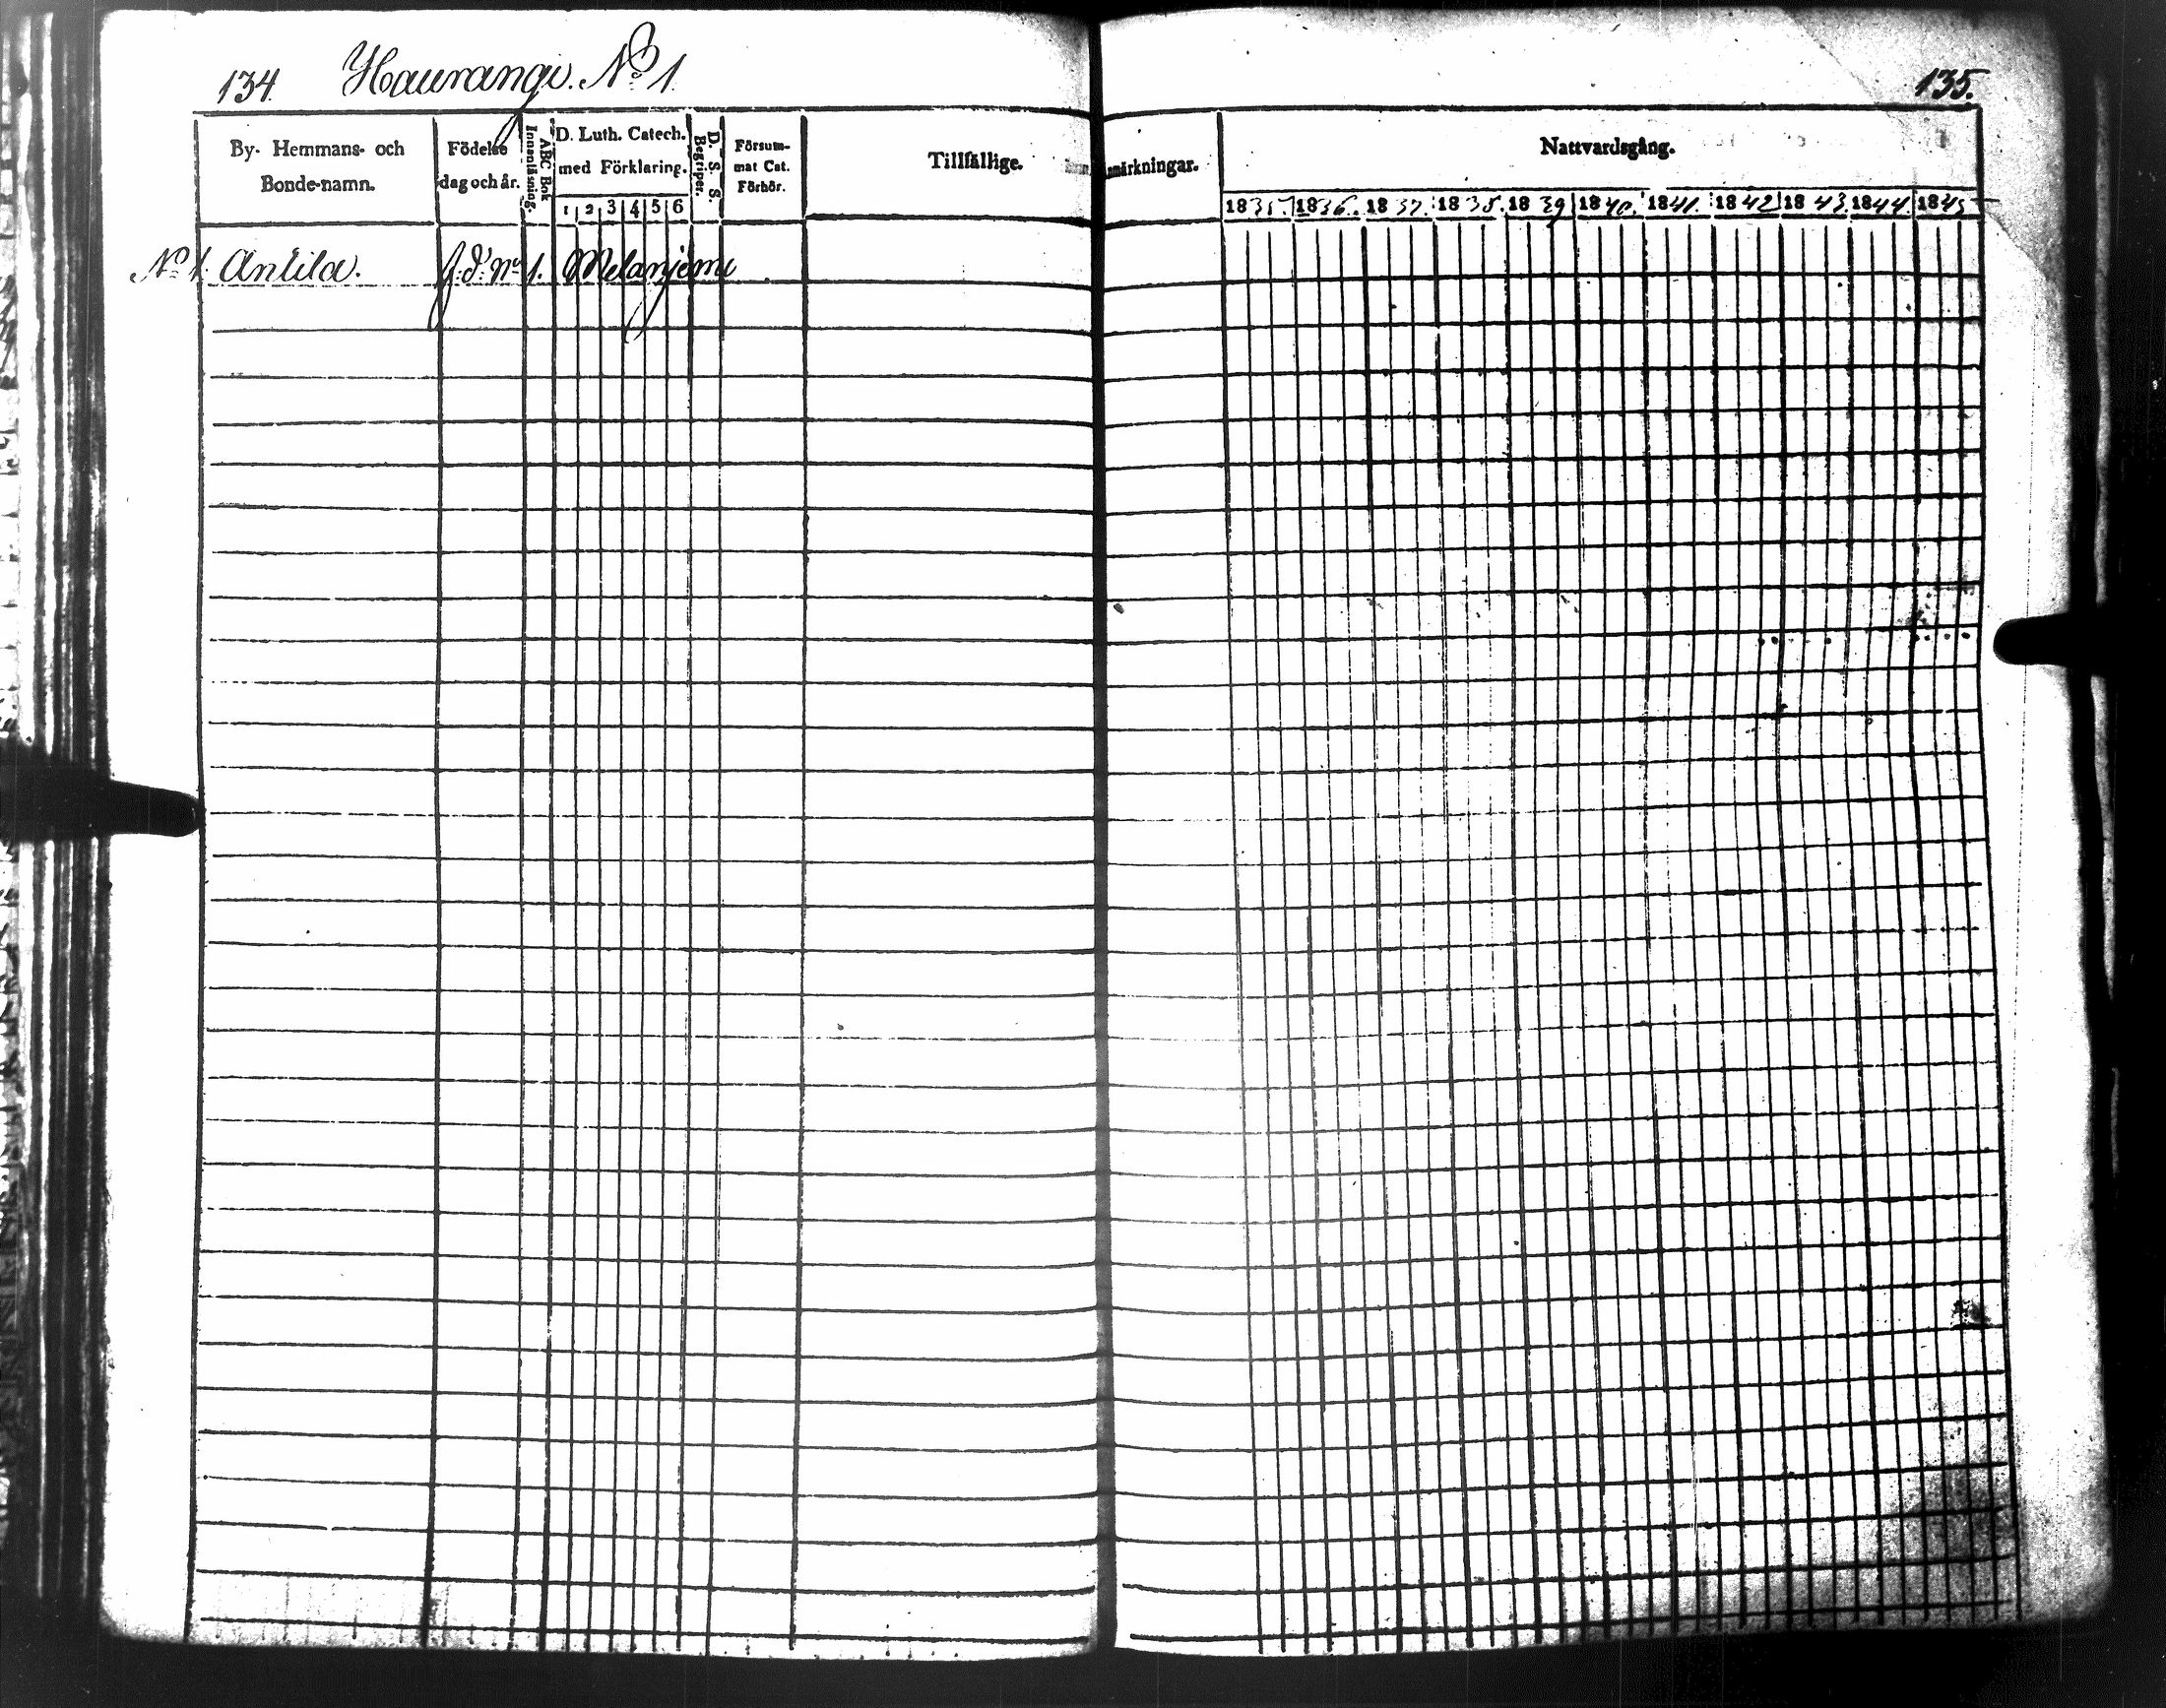 134. Haurangi. No 1.
135.
By- Hemmans- och Bonde-namn.
Födelse dag och år.
Innanläsning.
ABC Bok
D. Luth. Catech. med Förklaring.
1 2 3 4 5 6
D. S. S. Begriper.
Försummat Cat. Förhör.
Tillfällige.
Anmärkningar.
Nattvardsgång.
1835. 1836. 1837. 1838. 1839 1840. 1841. 1842 1843. 1844. 1845
No 1. Antila.